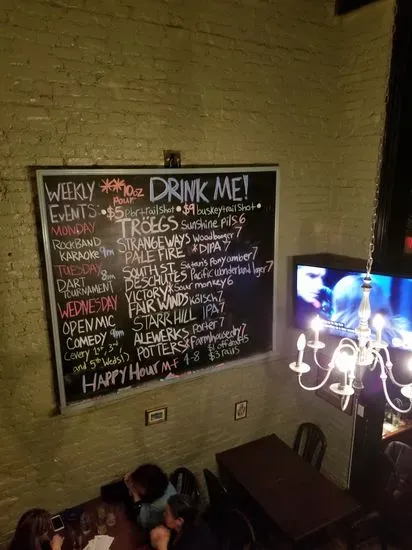 WEEKLY
EVENTS:
MONDAY
ROCKBAND
KARAOKE 9pm
TUESDAY
DART 8pm
TOURNAMENT
WEDNESDAY
OPEN MIC
COMEDY 9pm
(every 1st, 3rd
and 5th Weds!)
**10oz
pour
DRINK ME!
•$5 Port rail shot •$9 buskey+rail shot•
TRÖEGS Sunshine pils 6
STRANGEWAYS Woodbooger 7
PALE FIRE *DIPA 7
SOUTH ST. Satan's Pony amber 7
DESCHUTES Pacific Wonderland lager 7
VICTORY* Sour monkey 6
FAIR WINDS Kölsch 7
STARR HILL IPA 7
ALEWERKS Porter 7
POTTER'S* Farmhouse dry 7
HAPPY HOUR M-F 4-8 $1 off drafts
$3 rails